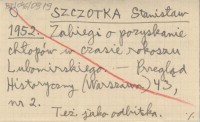 SZCZOTKA Stanisław
1952. Zabiegi o pozyskanie
chłopów w czasie rokoszu
Lubomirskiego. — Przegląd
Historyczny (Warszawa) 43,
nr 2.
Też jako odbitka.